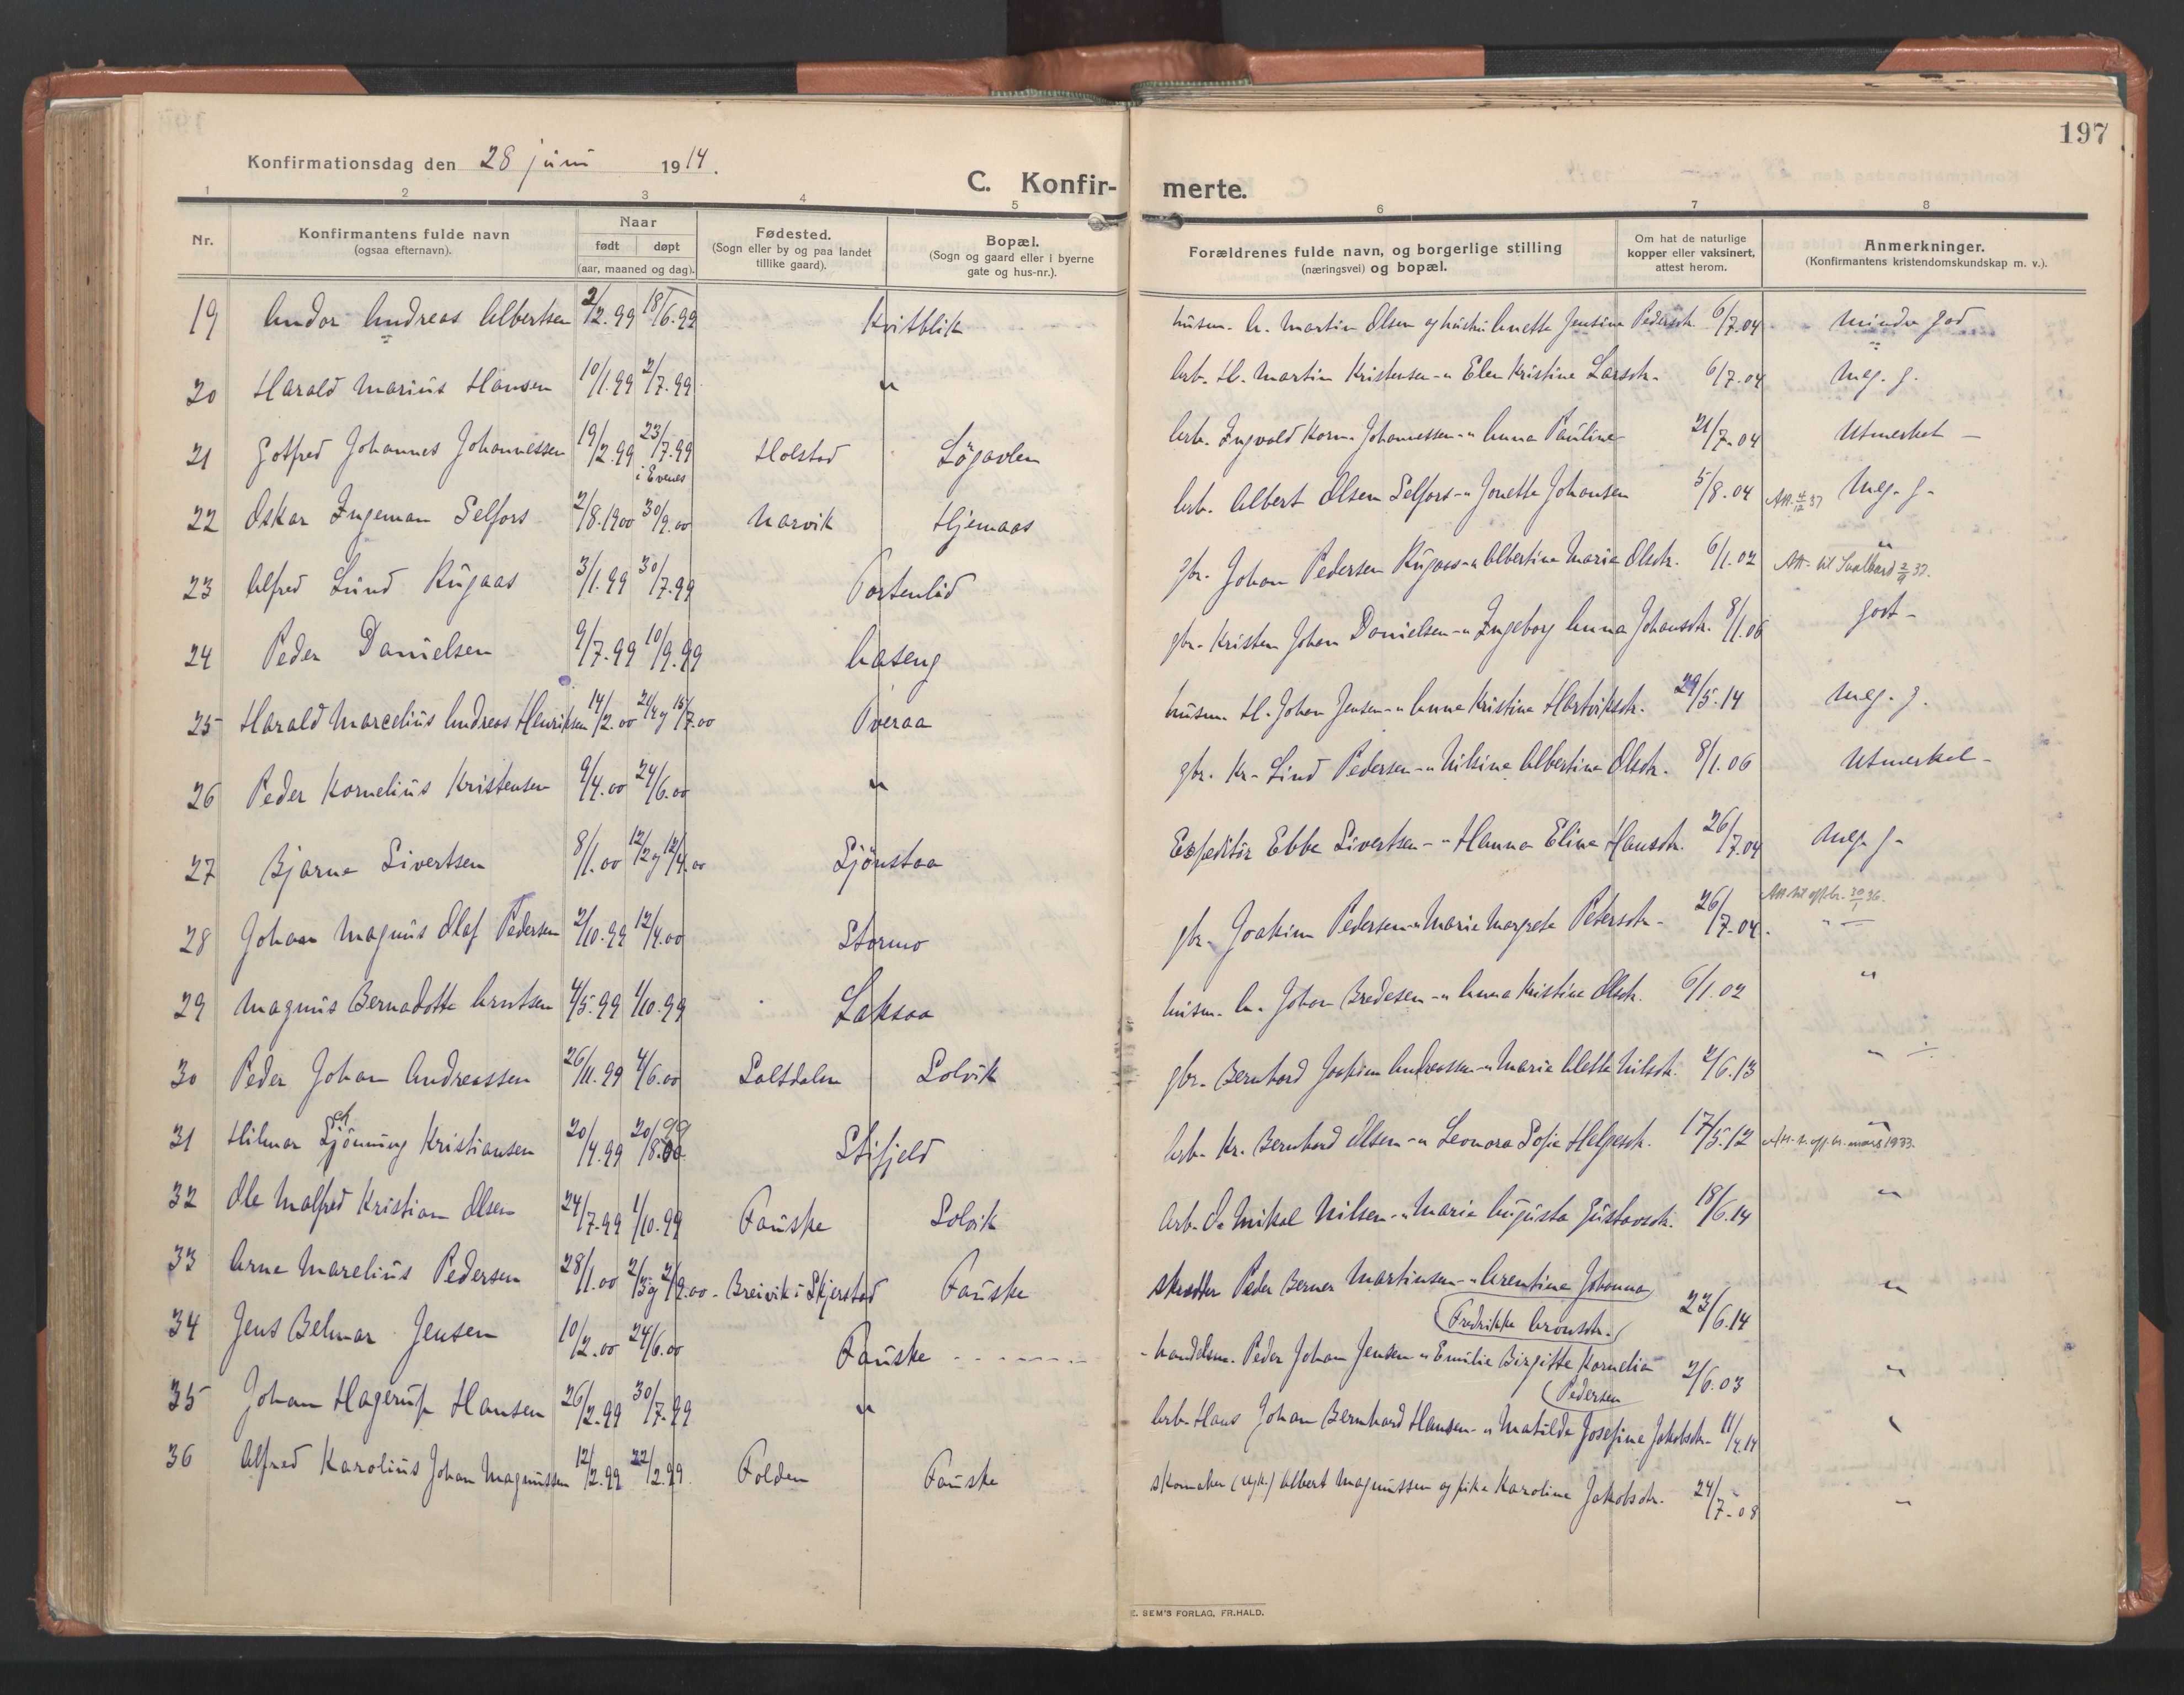 197
Konfirmationsdag den 28 juni 1914.
C. Konfir- merte.
1 2 3 4 5 6 7 8
Nr.
Konfirmantens fulde navn
(ogsaa efternavn).
Naar
født døpt
(aar, maaned og dag).
Fødested.
(Sogn eller by og paa landet
tillike gaard).
Bopæl.
(Sogn og gaard eller i byerne
gate og hus-nr.).
Forældrenes fulde navn, og borgerlige stilling
(næringsvei) og bopæl.
Om hat de naturlige
kopper eller vaksinert,
attest herom.
Anmerkninger.
(Konfirmantens kristendomskundskap m. v.).
19 Andor Andreas Albertsen 2/2.99 18/6.99 Kvitblik husm. A. Martin Olsen og hustru Anette Jensine Pedersdtr. 6/7.04 Mindre god
20 Harald Marius Hansen 10/1.99 2/7.99 " Arb. H. Martin Kristensen - " Elen Kristine Larsdtr. 6/7.04 Meg. g.
21 Gotfred Johannes Johannessen 19/2.99 23/7.99 Holstad Løgavlen Arb. Ingvald Korn. Johannessen - " Anna Pauline 21/7.04 Utmerket -
i Evenes
22 Oskar Ingeman Selfors 2/8.1900 30/9.00 Narvik Hjemaas Arb. Albert Olsen Selfors - " Jonette Johansen 5/8.04 Att. 4/12 37 Meg. g.
23 Alfred Lund Rugaas 3/1.99 30/7.99 Tortenlid gbr. Johan Pedersen Rugaas - " Albertine Maria Olsdtr. 6/1.02 " Att. til Svalbard 2/9 37.
24 Peder Danielsen 9/7.99 10/9.99 Aaseng gbr. Kristen Johan Danielsen - " Ingeborg Anna Johansdtr. 8/1.06 godt -
25 Harald Marcelius Andreas Henriksen 14/2.00 21/4 og 15/7.00 Tveraa husm. H. Johan Jensen - " Anna Kristine Hartviksdtr. 29/5.14 Meg. g.
26 Peder Kornelius Kristensen 9/4.00 24/6.00 " gbr. Kr. Lind Pedersen - " Nilsine Albertine Olsdtr. 8/1.06 Utmerket -
27 Bjarne Sivertsen 8/1.00 12/2 og 12/4.00 Sjønstaa Expeditør Ebbe Sivertsen - " Hanna Eline Hansdtr. 26/7.04 Meg. g.
28 Johan Magnus Olaf Pedersen 2/10.99 12/4.00 Stormo gbr. Joakim Pedersen - " Marie Margrete Petersdtr. 26/7.04. Att. til opbr. 20/1 36. " -
29 Magnus Bernadotte Arntsen 4/5.99 1/10.99 Laksaa husm. A. Johan Bredesen - " Anna Kristine Olsdtr. 6/1.02 "
30 Peder Johan Andreassen 26/11.99 4/6.00 Saltdalen Solvik gbr. Bernhard Joakim Andreassen - " Marie Alette Nilsdtr. 2/6.13 "
31 Hilmar Sjönning Kristiansen 20/4.99 20/8.99 Stifjeld Arb. Kr. Bernhard Olsen - " Leonora Sofie Helgesdtr. 17/5.12 " Att. t. opbr. mars 1933.
32 Ole Malfred Kristian Olsen 24/7.99 1/10.99 Fauske Solvik Arb. O. Mikal Nilsen - " Maria Augusta Gustavsdtr. 18/6.14 "
33 Arne Marelius Pedersen 28/1.00 2/3 og 2/9.00 - Breivik i Skjerstad Fauske Skrædder Peder Berner Martinsen - " Arentine Johanna
Fredrikke Aronsdtr. 22/6.14 "
34 Jens Belmar Jensen 10/2.00 24/6.00 Fauske - handelsm. Peder Johan Jensen " Emilie Birgitte Kornelia
Pedersen 2/6.03 "
35 Johan Hagerup Hansen 26/2.99 30/7.99 " Arb. Hans Johan Bernhard Hansen - " Matilde Josefine Jakobsdtr. 11/4.14
36 Alfred Karolius Johan Magnussen 12/2.99 22/2.99. Folden Fauske skomaker (ugk.) Albert Magnussen og pike Karoline Jakobsdtr. 24/7.08 "
E. SEM'S FORLAG, FR.HALD.